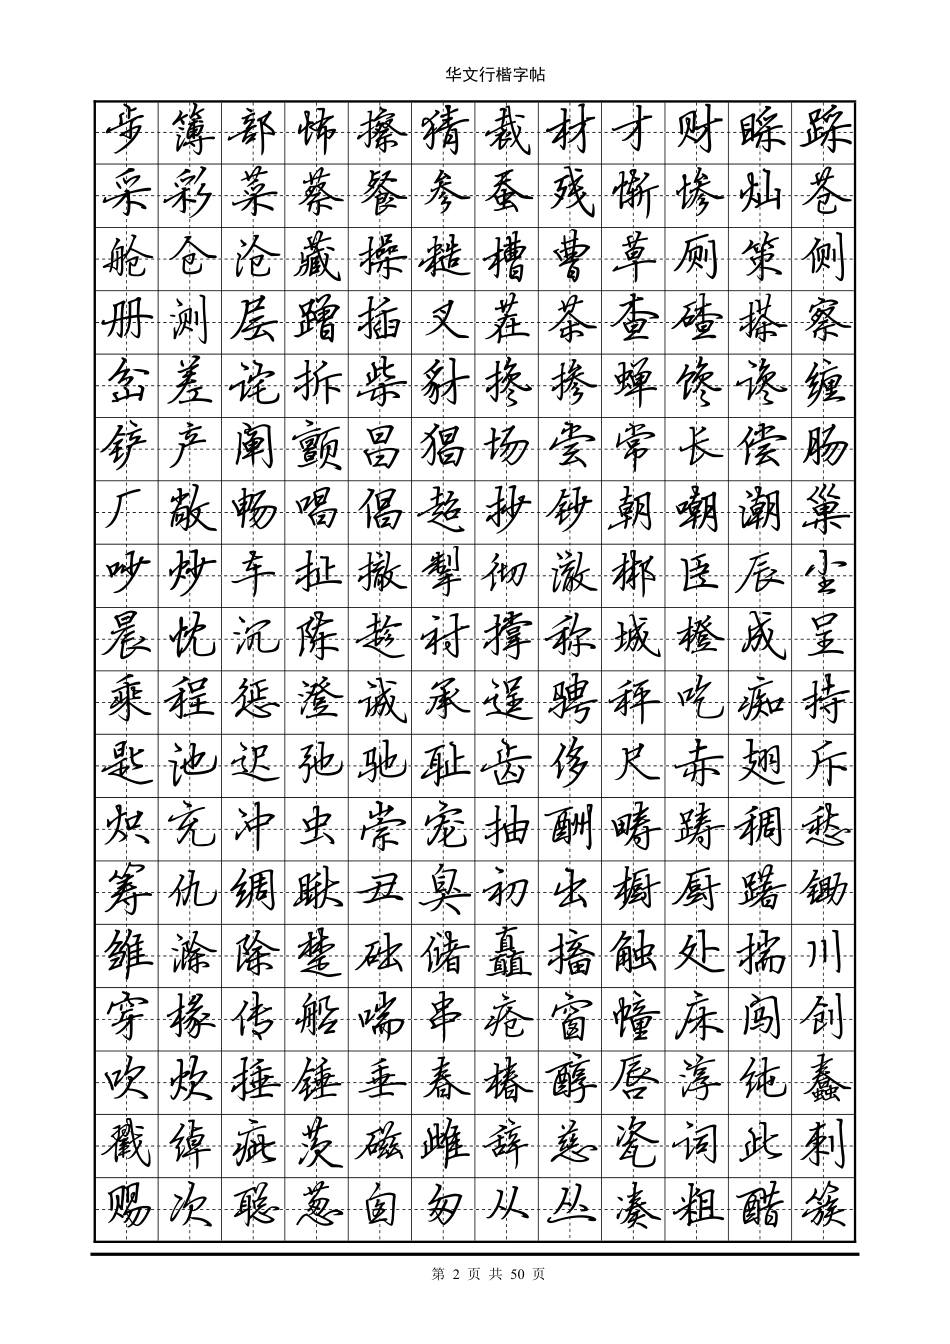 华文行楷字帖
步簿部怖擦猜裁材才财睬踩
采彩菜蔡餐参蚕残惭惨灿苍
舱仓沧藏操糙槽曹草厕策侧
册测层蹭插叉茬茶查碴搽察
岔差诧拆柴豺搀掺蝉馋谗缠
铲产阐颤昌猖场尝常长偿肠
厂敞畅唱倡超抄钞朝嘲潮巢
吵炒车扯撤掣彻澈郴臣辰尘
晨忱沉陈趁衬撑称城橙成呈
乘程惩澄诚承逞骋秤吃痴持
匙池迟弛驰耻齿侈尺赤翅斥
炽充冲虫崇宠抽酬畴踌稠愁
筹仇绸瞅丑臭初出橱厨躇锄
雏滁除楚础储矗搐触处揣川
穿椽传船喘串疮窗幢床闯创
吹炊捶锤垂春椿醇唇淳纯蠢
戳绰疵茨磁雌辞慈瓷词此刺
赐次聪葱囱匆从丛凑粗醋簇
第 2 页 共 50 页